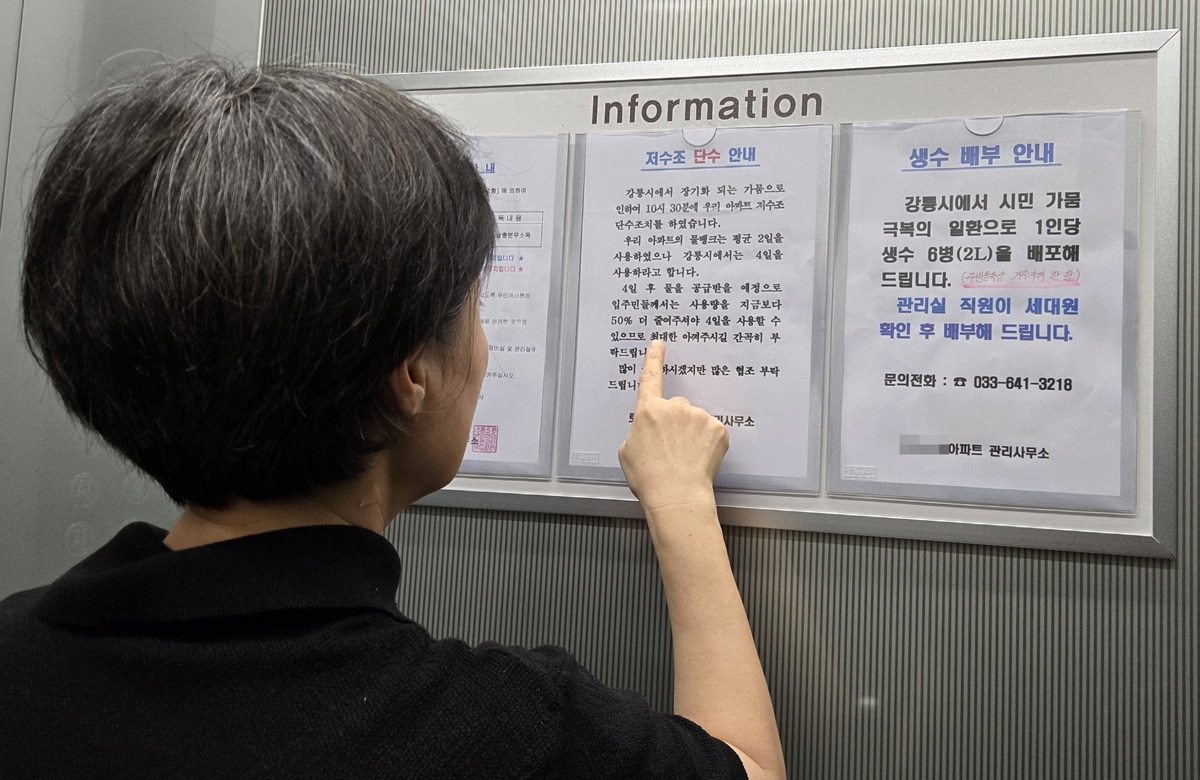 Information
내
에 의하여
독 내 용
살충분무소독
저수조 단수 안내
강릉시에서 장기화 되는 가뭄으로
인하여 10시 30분에 우리 아파트 저수조
단수조치를 하였습니다.
우리 아파트의 물탱크는 평균 2일을
사용하였으나 강릉시에서는 4일을
사용하라고 합니다.
4일 후 물을 공급받을 예정으로
입주민들께서는 사용량을 지금보다
50% 더 줄여주셔야 4일을 사용할 수
있으므로 최대한 아껴주시길 간곡히 부
탁드립니
많이 하시겠지만 많은 협조 부탁
드립니
사무소
생수 배부 안내
강릉시에서 시민 가뭄
극복의 일환으로 1인당
생수 6병(2L)을 배포해
드립니다.
관리실 직원이 세대원
확인 후 배부해 드립니다.
문의전화 : ☎ 033-641-3218
아파트 관리사무소